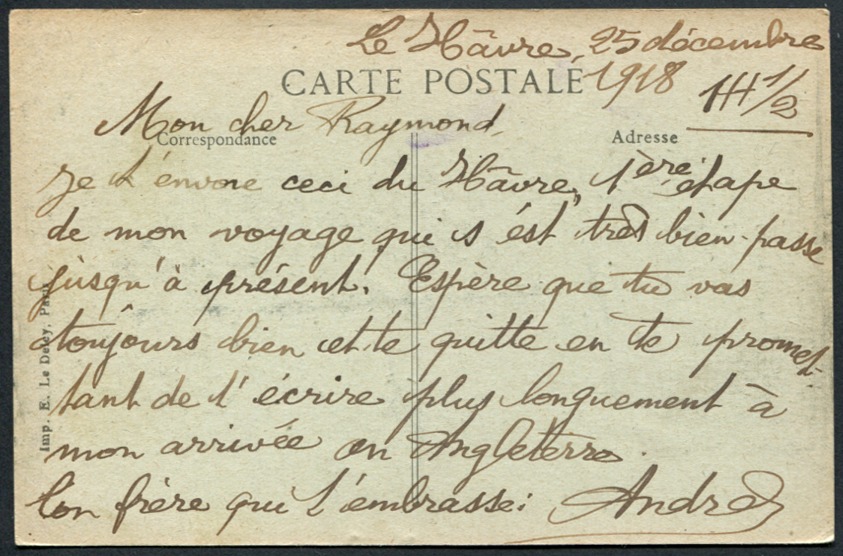 Le Hâvre, 25 décembre
CARTE POSTALE 1918
1H 1/2
Mon cher Raymond,
Correspondance
Adresse
Je t'envoie ceci du Hâvre, 1ère étape
de mon voyage qui s'ést très bien passé
jusqu'à présent. Espère que tu vas
toujours bien et te quitte en te promet-
tant de t'écrire plus longuement à
mon arrivée en Angleterre.
Ton frère qui t'embrasse:
André
Imp. E. Le Deley, Paris